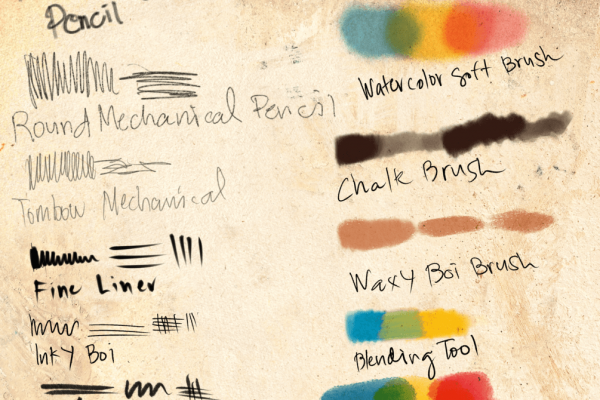 Pencil
Round Mechanical Pencil
Tombow Mechanical
Fine Liner
Inky Boi
Watercolor Soft Brush
Chalk Brush
Waxy Boi Brush
Blending Tool